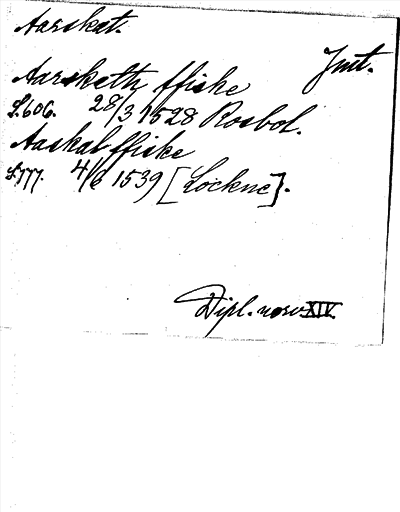 Aarskat.
Jmt.
Aarsketh ffiske
S.606. 28/3 1528 Rosbol.
Aaskal ffiske
S.777. 4/6 1539 [Lockne].
Dipl. norv. XIV.